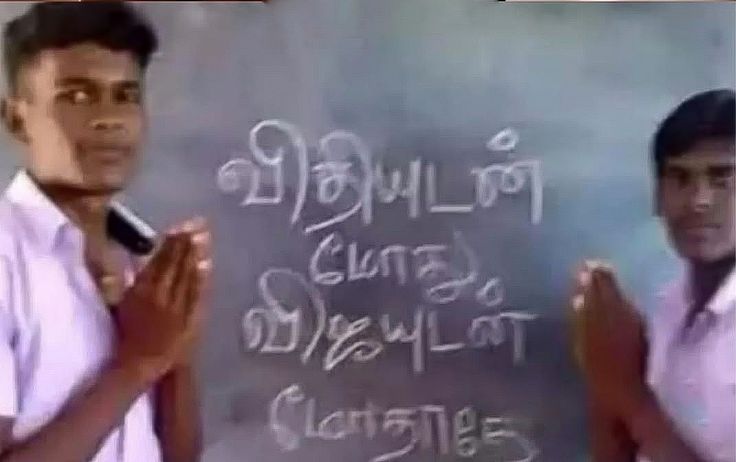 விதியுடன்
மோது
விஜயுடன்
மோதாதே